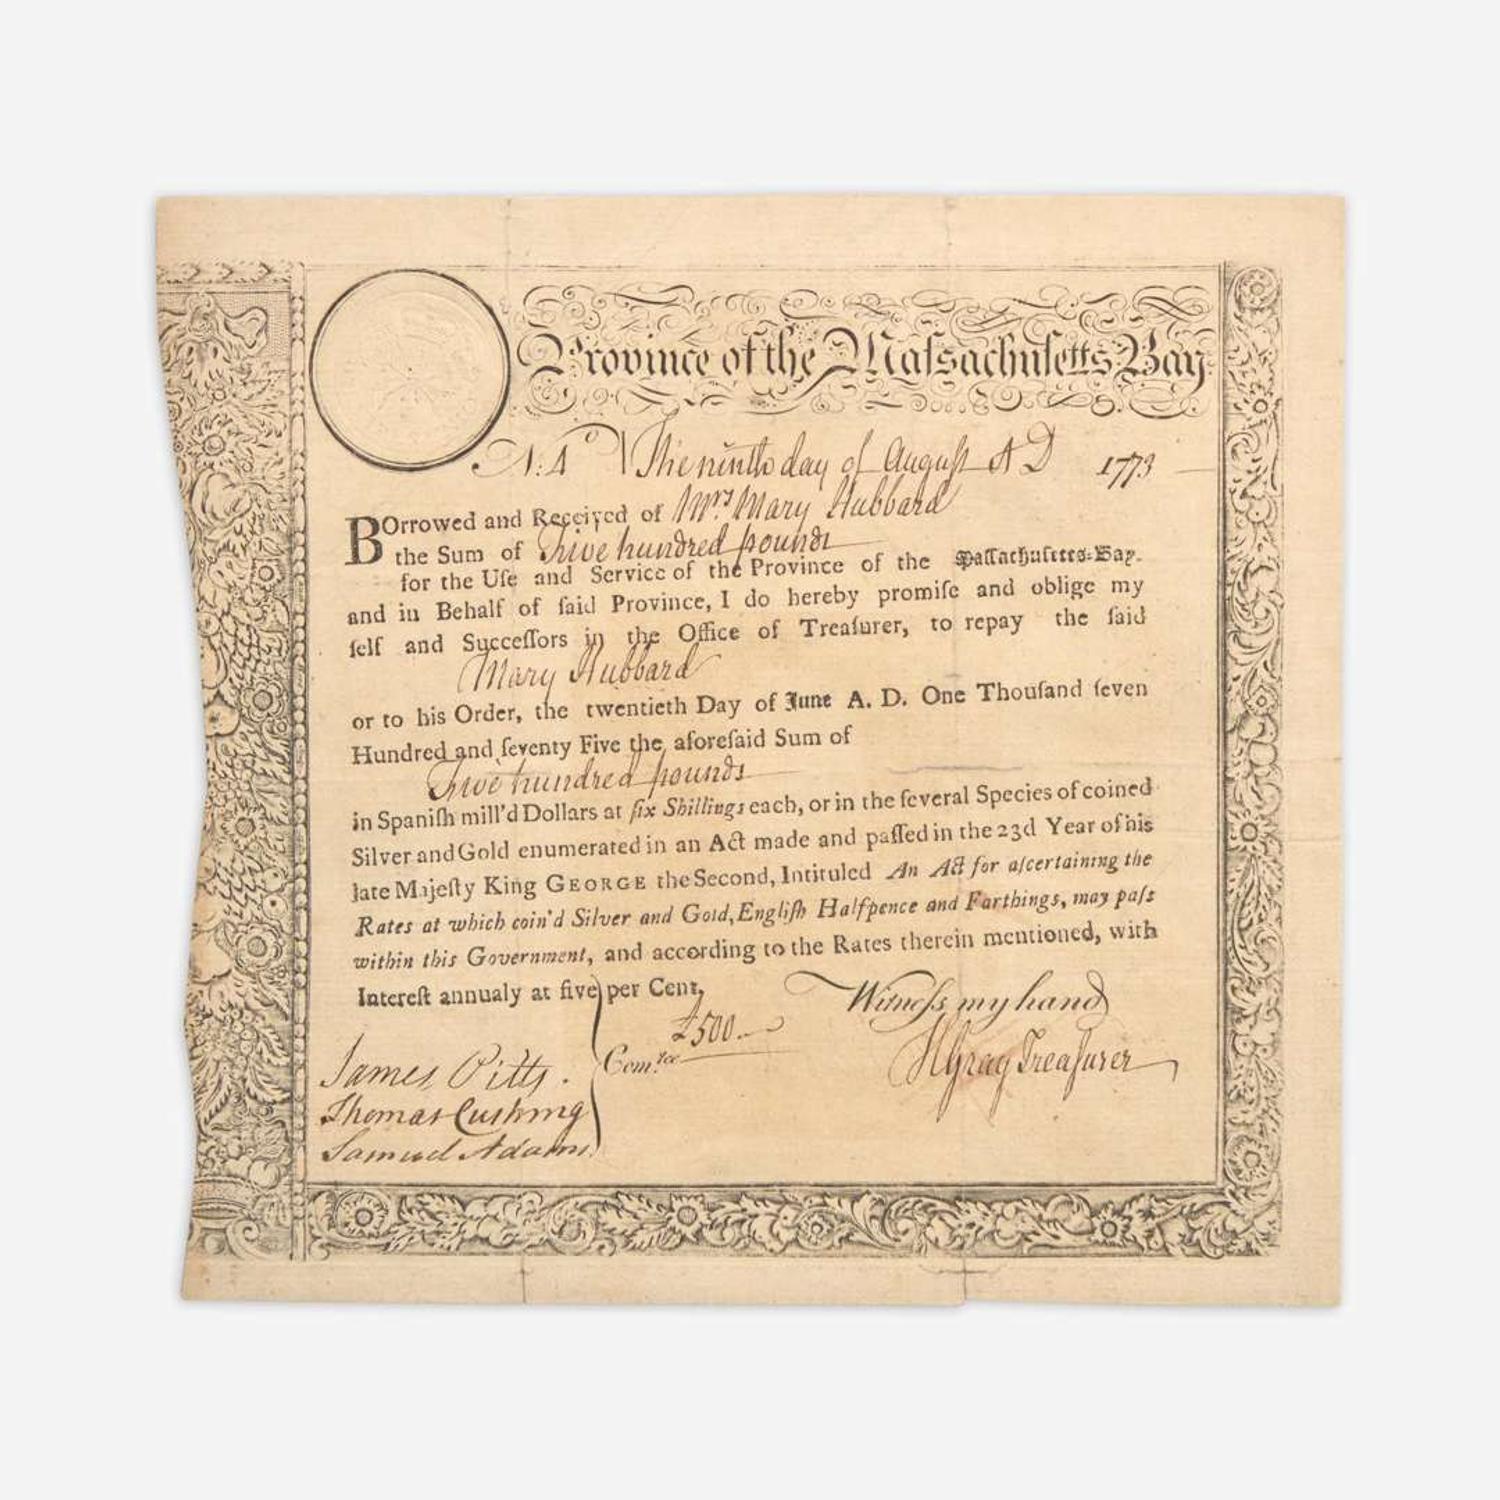 Province of the Maſsachuſetts Bay
No: 4 The ninth day of Auguſt AD 1773
BOrrowed and Received of Mrs. Mary Hubbard
the Sum of Five hundred pounds
for the Uſe and Service of the Province of the Maſſachuſetts-Bay.
and in Behalf of ſaid Province, I do hereby promiſe and oblige my
ſelf and Succeſſors in the Office of Treaſurer, to repay the ſaid
Mary Hubbard
or to his Order, the twentieth Day of June A. D. One Thouſand ſeven
Hundred and ſeventy Five the aforeſaid Sum of
Five hundred pounds
in Spaniſh mill'd Dollars at ſix Shillings each, or in the ſeveral Species of coined
Silver and Gold enumerated in an Act made and paſſed in the 23d Year of his
late Majeſty King GEORGE the Second, Intituled An Act for aſcertaining the
Rates at which coin'd Silver and Gold, Engliſh Halfpence and Farthings, may paſs
within this Government, and according to the Rates therein mentioned, with
Intereſt annualy at five per Cent.
Witneſs my hand
£500..
James Pitts. Com.tee HGray Treaſurer
Thomas Cushing
Samuel Adams